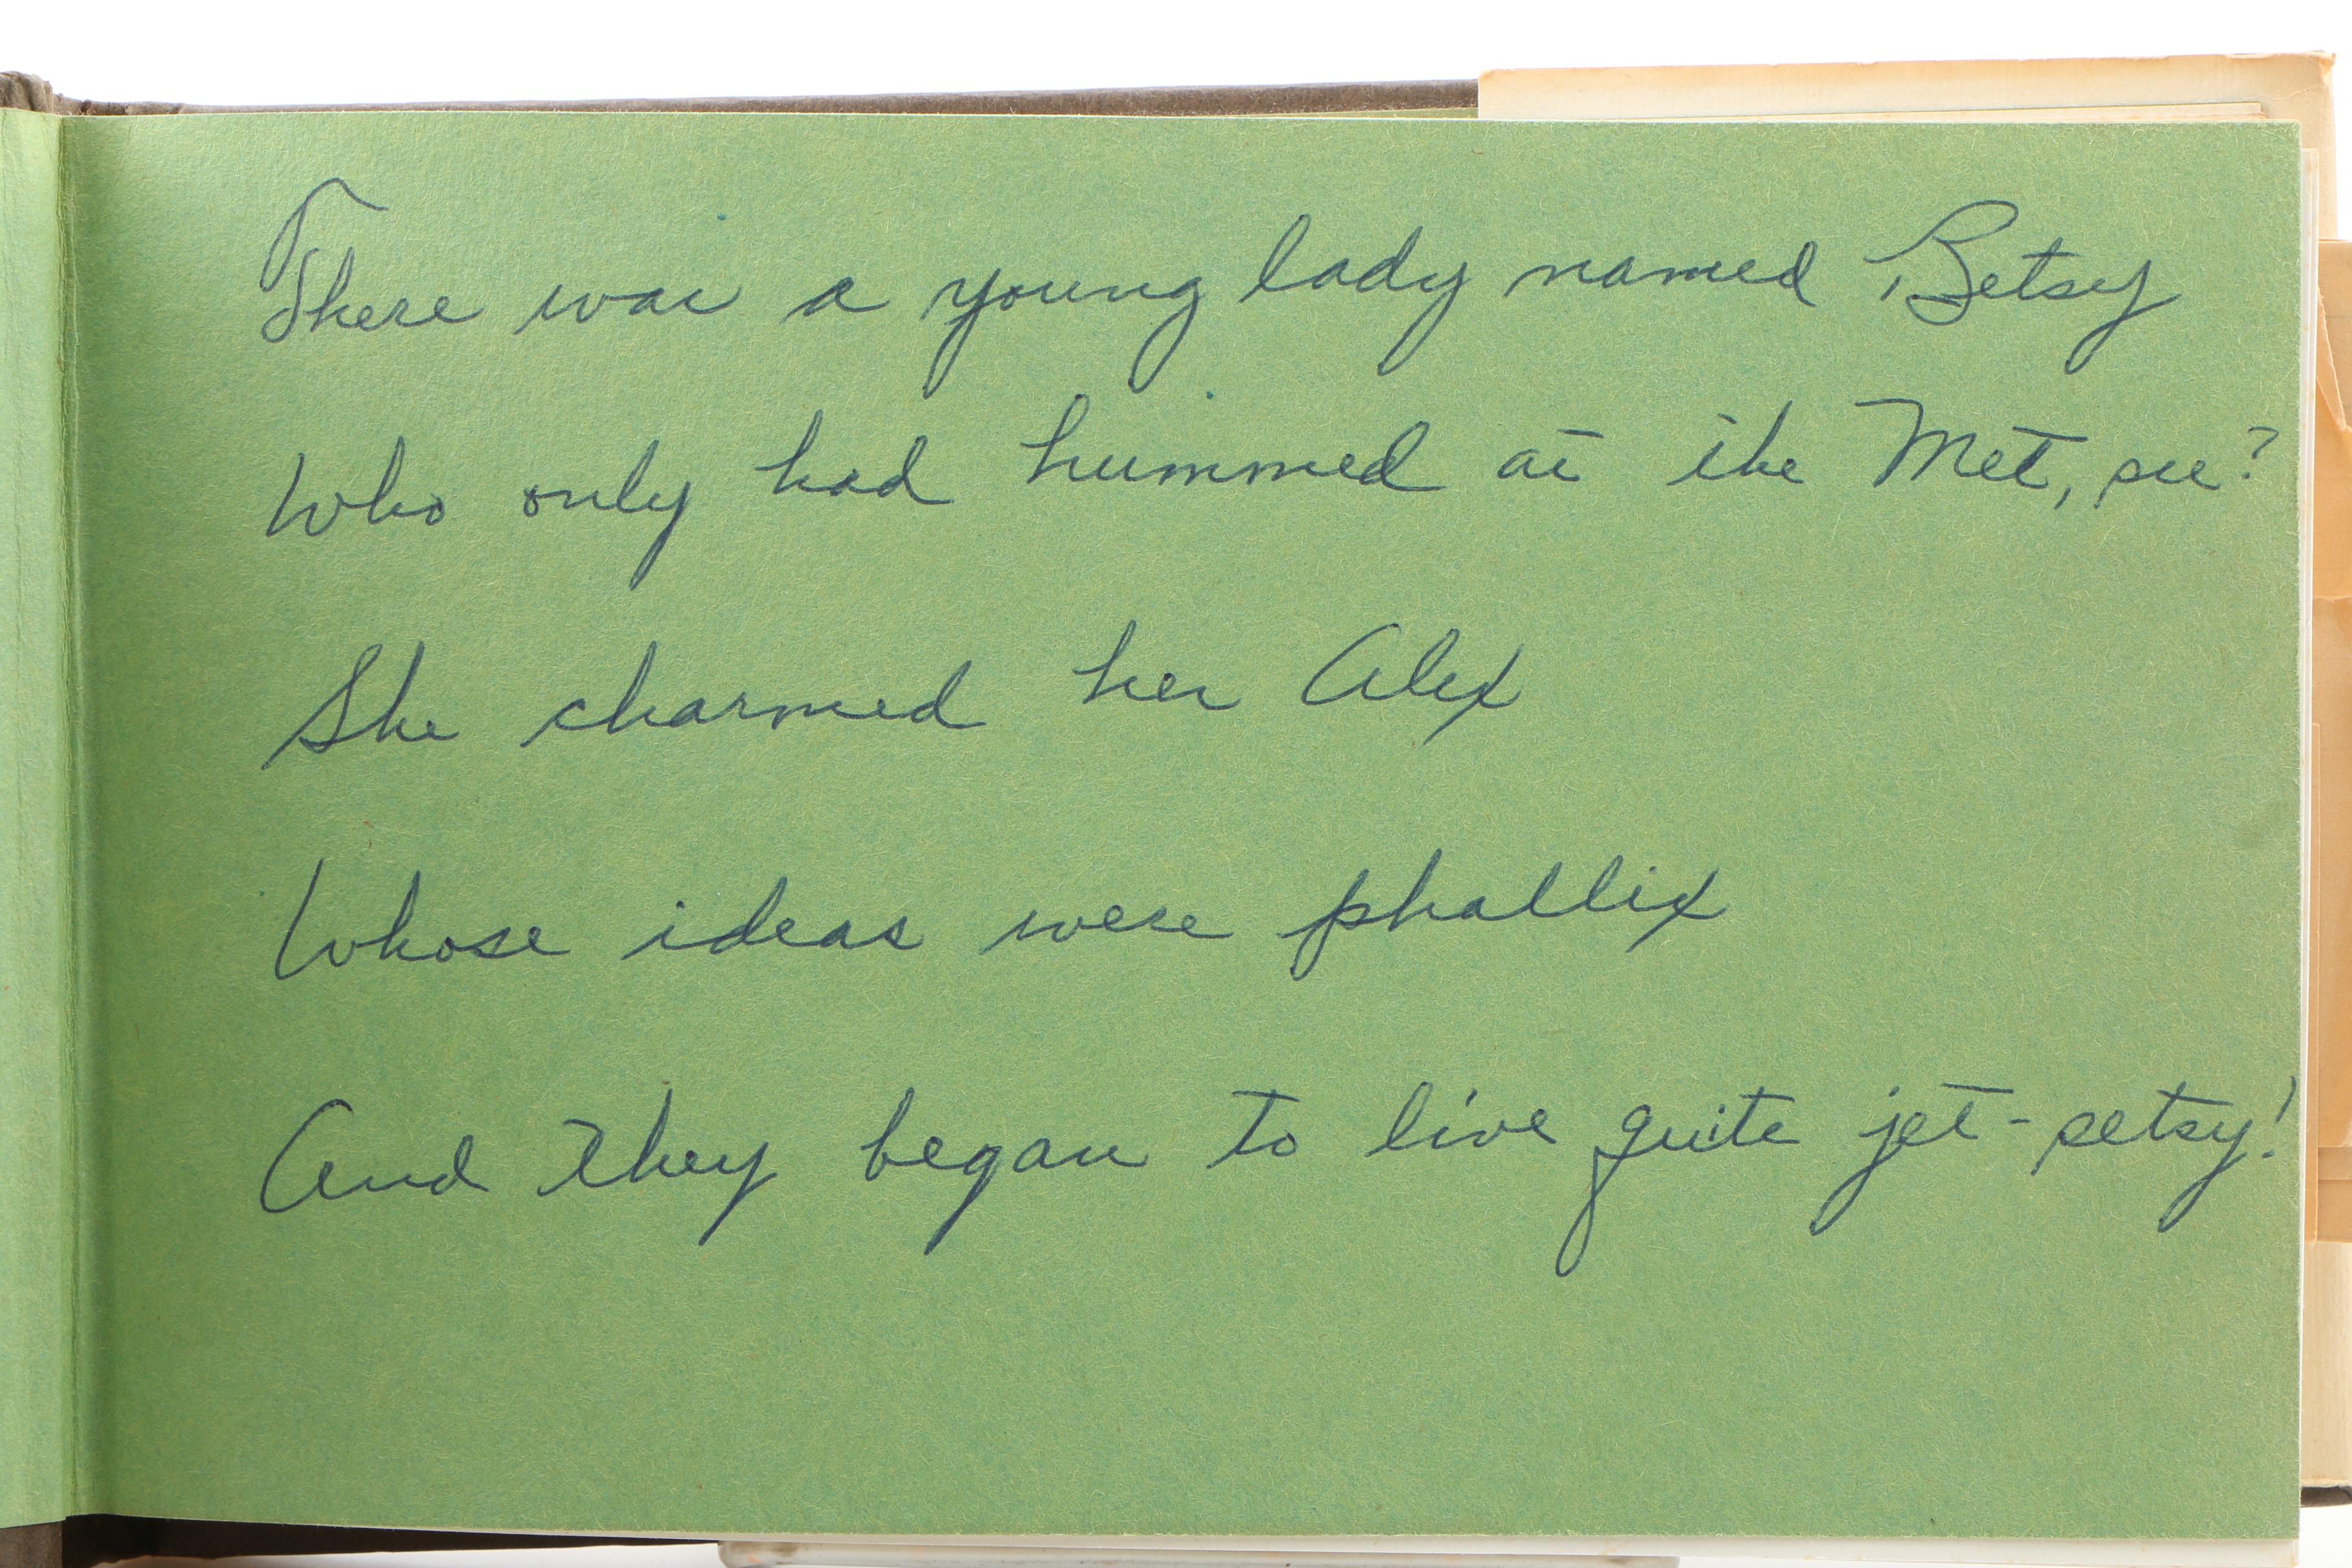 There was a young lady named Betsy
Who only had hummed at the Met, see?
She charmed her Alex
Whose ideas were phallix
And they began to live quite jet-setsy!